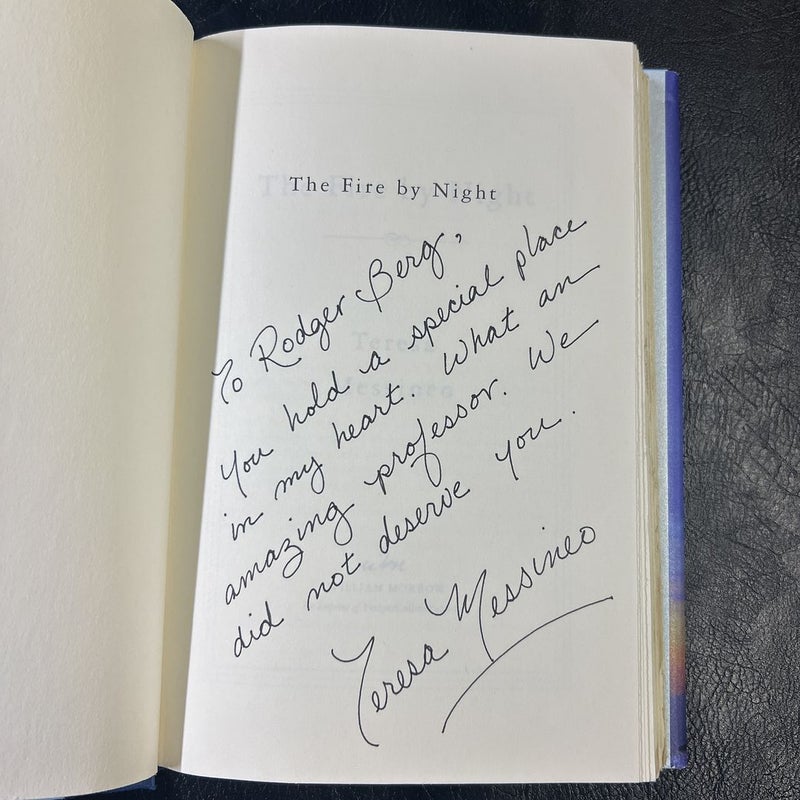 The Fire by Night
To Rodger Berg,
You hold a special place
in my heart. What an
amazing professor. We
did not deserve you.
Teresa Messineo